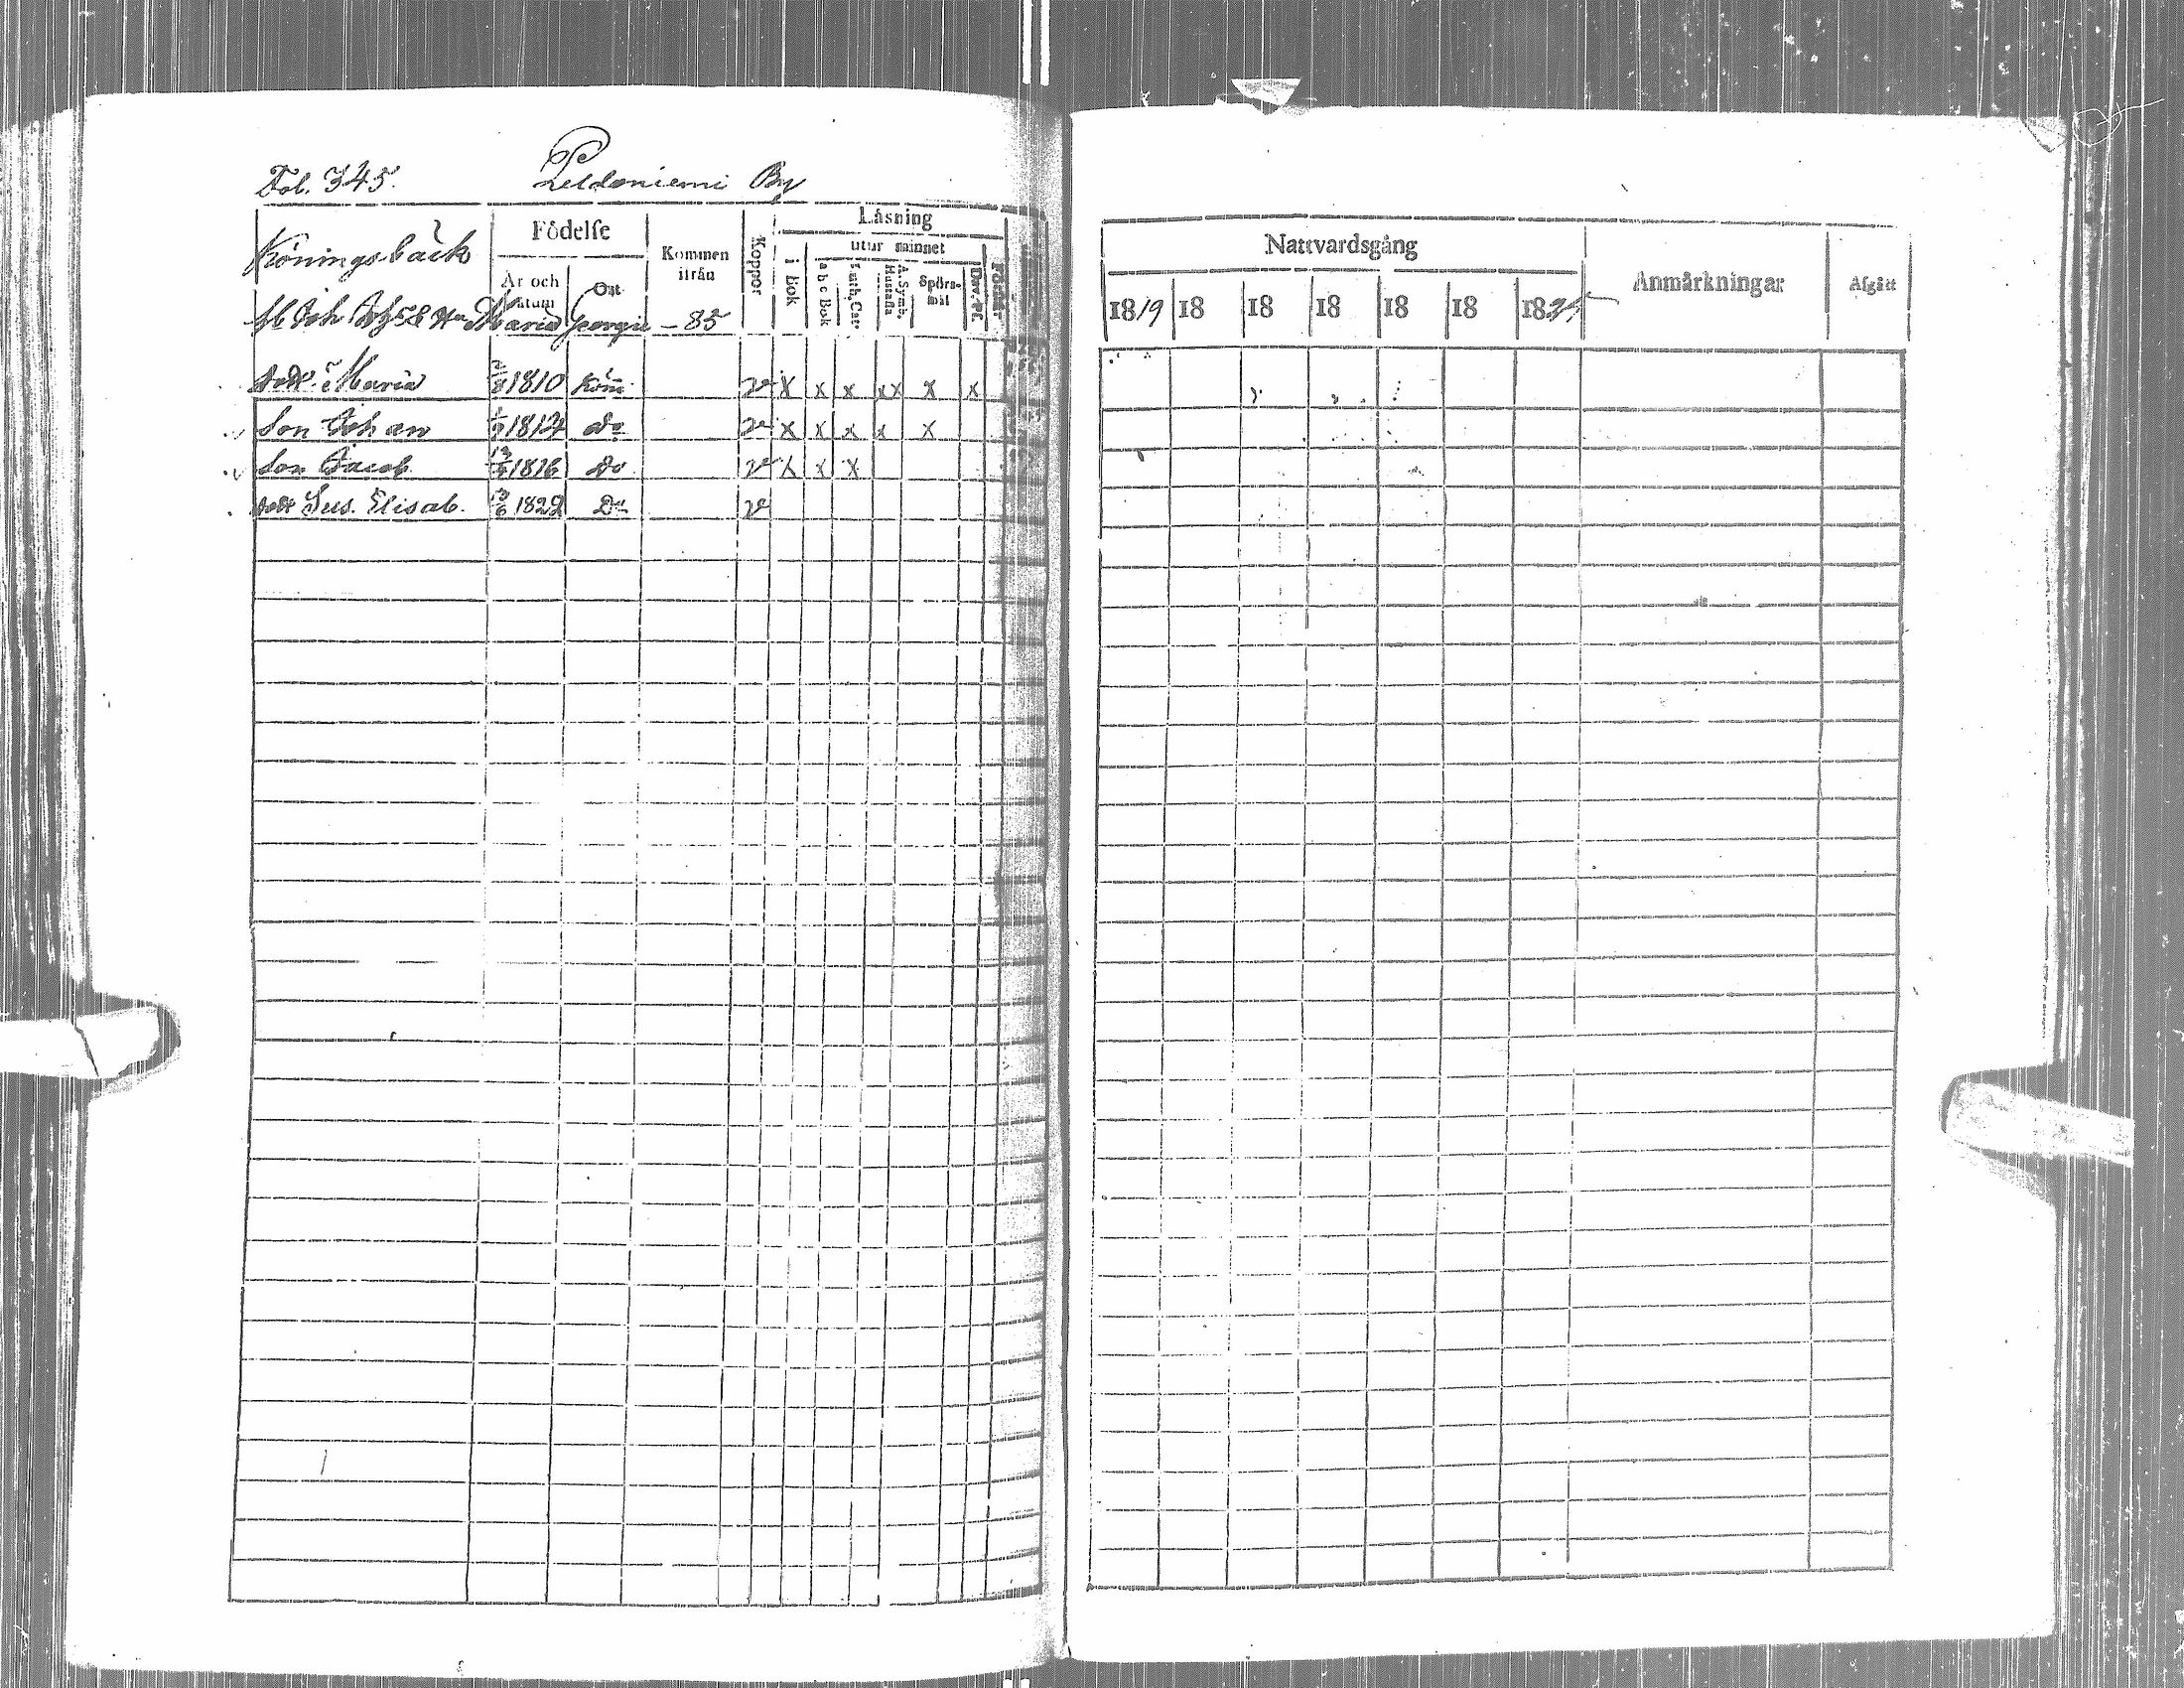 Fol. 345. Peldoniemi By
Köningsbäck
Födelse
År och Datum
Ort
Kommen ifrån
Koppor
Läsning
i Bok
utur minnet
a b c Bok
Luth. Cat.
A. Symb.
Hustafla
Spörsmål
Dav. Ps.
Maria Georgii – 85
Dott. Maria 1810 Köm. v x x x x x x x
Son Johan 1814 Do v x x x x x
Son Jacob 1816 Do v x x x
Dott Sus. Elisab. 1822 Do v
Nattvardsgång
1819 18 18 18 18 18 18
Anmärkningar
Afgått